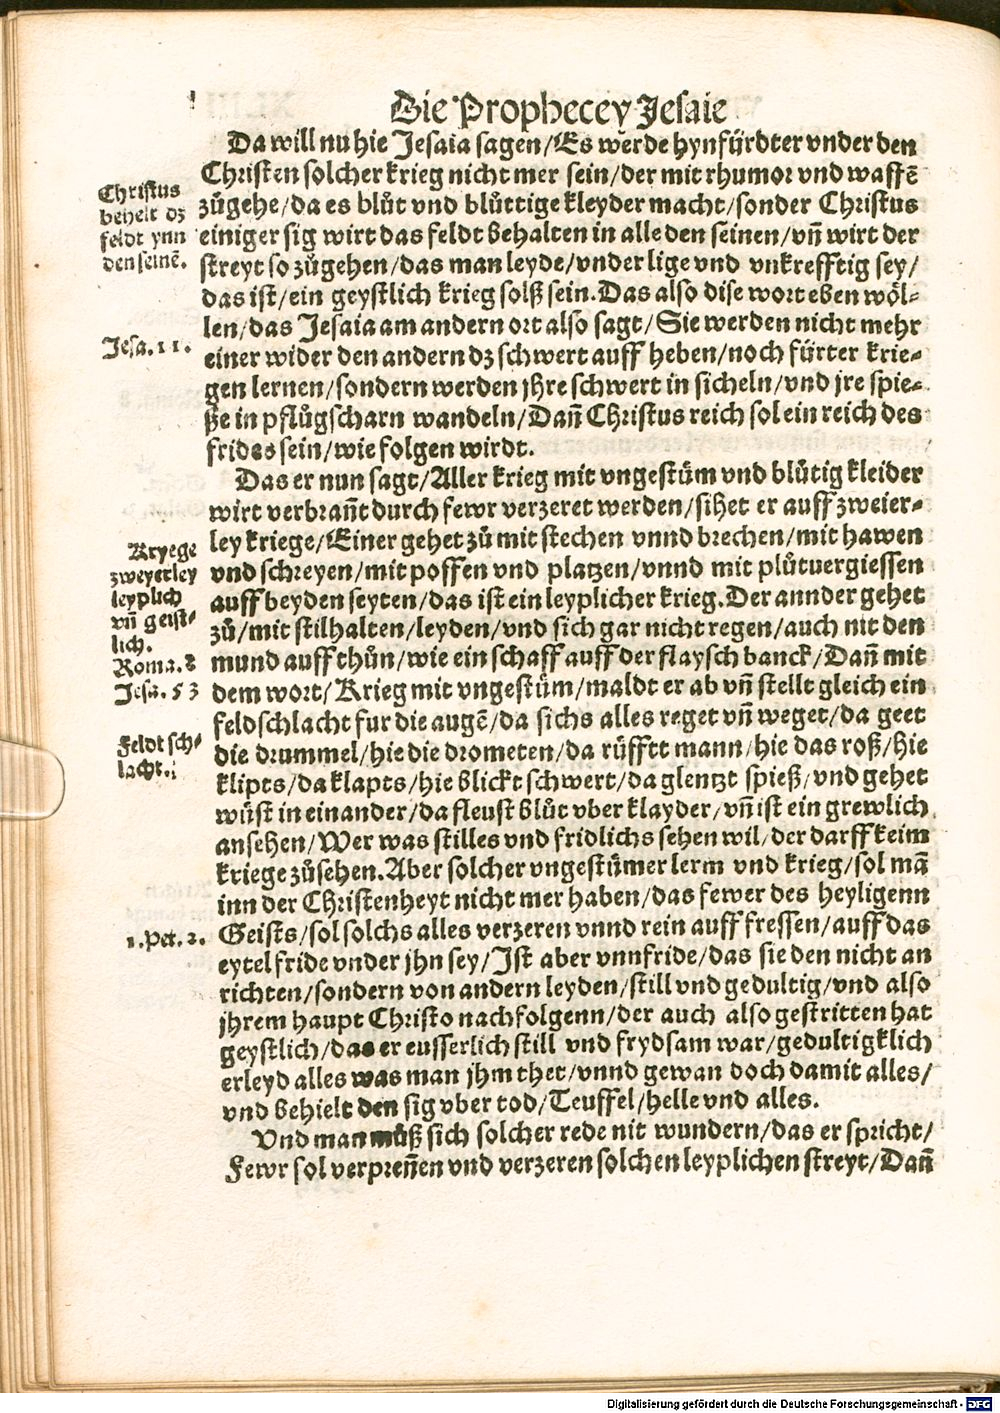 Die Prophecey Jesaie
Da will nu hie Jesaia sagen/Es werde hynfürdter vnder den
Christen solcher krieg nicht mer sein/der mit rhumor vnd waffē
zůgehe/da es blůt vnd blůttige kleyder macht/sonder Christus
einiger sig wirt das feldt behalten in alle den seinen/vn̄ wirt der
streyt so zůgehen/das man leyde/vnder lige vnd vnkrefftig sey/
das ist/ein geystlich krieg solß sein. Das also dise wort eben wöl⸗
len/das Jesaia am andern ort also sagt/Sie werden nicht mehr
einer wider den andern dz schwert auff heben/noch fürter krie⸗
gen lernen/sondern werden jhre schwert in sicheln/vnd jre spie⸗
ße in pflůgscharn wandeln/Dan̄ Christus reich sol ein reich des
frides sein/wie folgen wirdt.
Das er nun sagt/Aller krieg mit vngestüm vnd blůtig kleider
wirt verbran̄t durch fewr verzeret werden/sihet er auff zweier⸗
ley kriege/Einer gehet zů mit stechen vnnd brechen/mit hawen
vnd schreyen/mit poffen vnd platzen/vnnd mit plůtuergiessen
auff beyden seyten/das ist ein leyplicher krieg. Der annder gehet
zů/mit stilhalten/leyden/vnd sich gar nicht regen/auch nit den
mund auff thůn/wie ein schaff auff der flaysch banck/Dan̄ mit
dem wort/Krieg mit vngestüm/maldt er ab vn̄ stellt gleich ein
feldschlacht fur die augē/da sichs alles reget vn̄ weget/da geet
die drummel/hie die drometen/da růfftt mann/hie das roß/hie
klipts/da klapts/hie blickt schwert/da glentzt spieß/vnd gehet
wüst in einander/da fleust blůt vber klayder/vn̄ ist ein grewlich
ansehen/Wer was stilles vnd fridlichs sehen wil/der darff keim
kriege zůsehen. Aber solcher vngestümer lerm vnd krieg/sol mā
inn der Christenheyt nicht mer haben/das fewer des heyligenn
Geists/sol solchs alles verzeren vnnd rein auff fressen/auff das
eytel fride vnder jhn sey/Ist aber vnnfride/das sie den nicht an
richten/sondern von andern leyden/still vnd gedultig/vnd also
jhrem haupt Christo nachfolgenn/der auch also gestritten hat
geystlich/das er eusserlich still vnd frydsam war/gedultigklich
erleyd alles was man jhm thet/vnnd gewan doch damit alles/
vnd behielt den sig vber tod/Teuffel/helle vnd alles.
Vnd man můß sich solcher rede nit wundern/das er spricht/
Fewr sol verpren̄en vnd verzeren solchen leyplichen streyt/Dan̄
Christus
behelt dz
feldt ynn
den seinē.
Jesa. 11.
Kryege
zweyerley
leyplich
vn̄ geist⸗
lich.
Roma. 8
Jesa. 53
Feldt sch⸗
lacht.
1. Pet. 2.
Digitalisierung gefördert durch die Deutsche Forschungsgemeinschaft - DFG